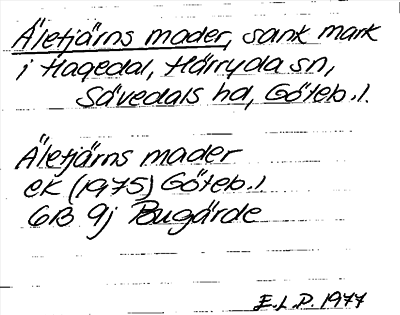 Äletjärns mader, sank mark
i Hagedal, Härryda sn,
Sävedals hd, Göteb. l.
Äletjärns mader
ek (1975) Göteb. l
6B 9j Bugärde
E.L.P. 1977